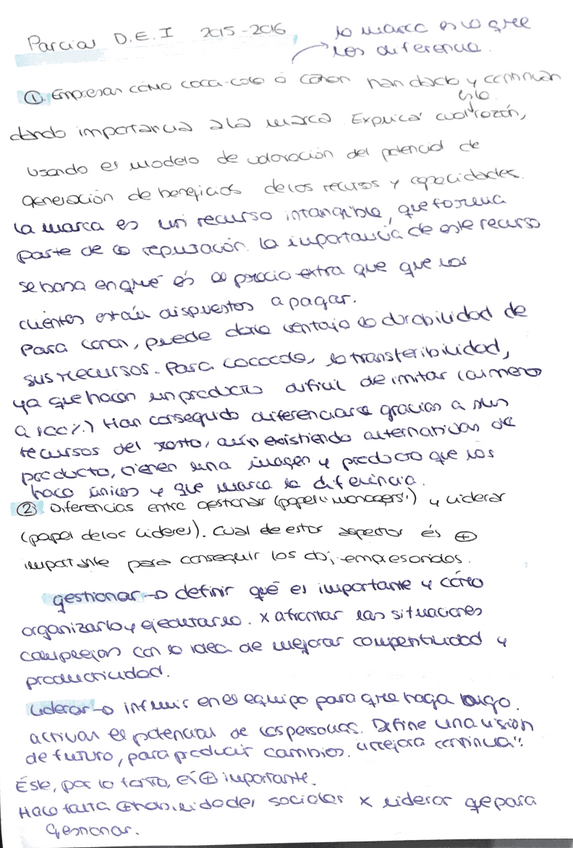 Parcial D.E.I 2015-2016
la marca es lo que
los diferencia.
① Empresas como coca-cola ó canon han dado y continúan
dando importancia a la marca Explica cual es la razón,
usando el modelo de valoración del potencial de
generación de beneficios de los recursos y capacidades.
La marca es un recurso intangible, que forma
parte de la reputación. La importancia de este recurso
se basa en que és el precio extra que que los
clientes están dispuestos a pagar.
Para canon, puede darle ventaja la durabilidad de
sus recursos. Para cocacola, la transferibilidad,
ya que hacen un producto difícil de imitar (al menos
a 100%) Han conseguido diferenciarse gracias a sus
recursos del resto, aún existiendo alternativas de
producto, tienen una imagen y producto que los
hace únicos y que marca la diferencia.
② Diferencias entre gestionar (papel "managers") y Liderar
(papel de los Lideres). Cual de estos aspectos és ⊕
importante para conseguir los obj. empresariales.
gestionar → definir qué es importante y cómo
organizarlo y ejecutarlo. x afrontar las situaciones
complejas con la idea de mejorar competitividad y
productividad.
Liderar → influir en el equipo para que haga algo.
activar el potencial de las personas. Define una visión
de futuro, para producir cambios. "mejora continua".
Éste, por lo tanto, es ⊕ importante.
Hace falta ⊕ habilidades sociales x liderar que para
gestionar.